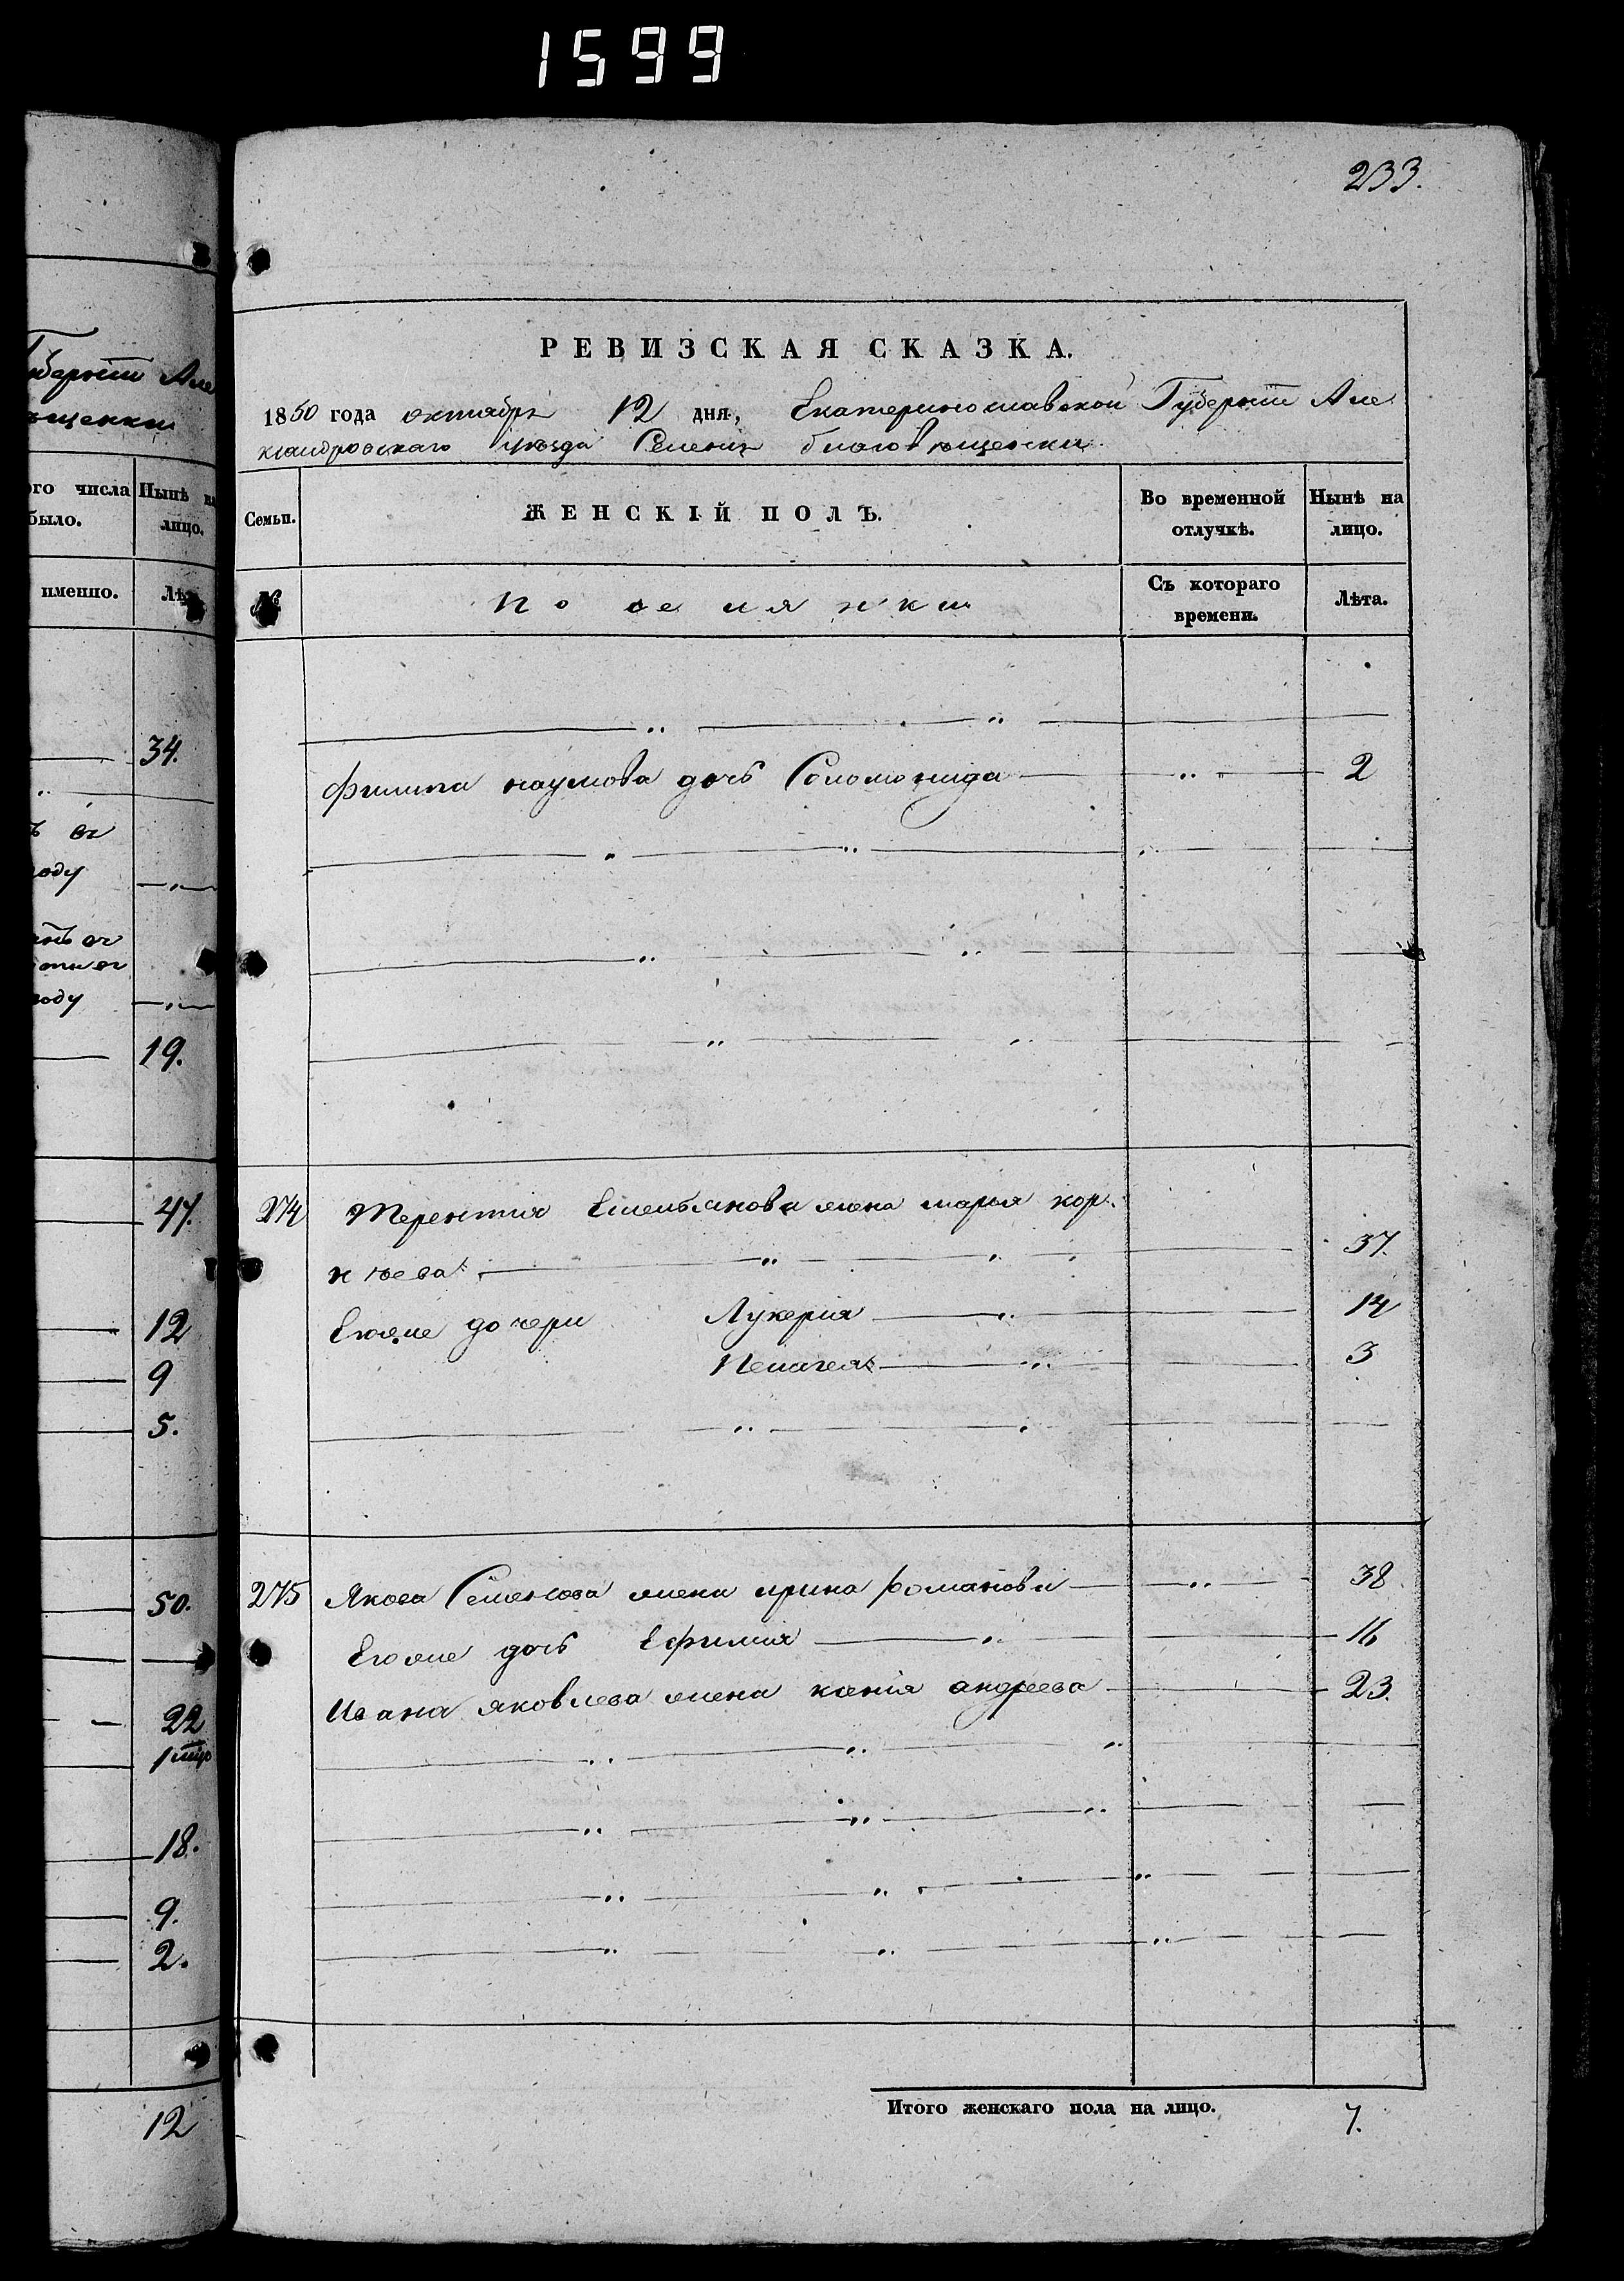 1599
233.
РЕВИЗСКАЯ СКАЗКА.
1850 года октября 12 дня, Екатеринославской Губерніи Але
ксандровскаго уѣзда Селенія благовѣщенки
Семьи. ЖЕНСКІЙ ПОЛЪ. Во временной отлучкѣ. Нынѣ на лицо.
№ Поселянки Съ котораго времени. Лѣта.
Филипа наумова дочь Соломонида 2
274 Терентія Емельянова жена марья кор.
нѣева 37.
Егоже дочери Лукерія 14
Пелагея 3
275 Якова Семенова жена ирина романова 38
Егоже дочь Ефимия 16
Ивана яковлева жена ксенія андреева 23.
Итого женскаго пола на лицо. 7.
Губерніи Але
ѣщенки
ого числа было. Нынѣ на лицо.
именно. Лѣ
34.
оду
оду
19.
47.
12
9
5.
50.
22
18.
9.
2.
12